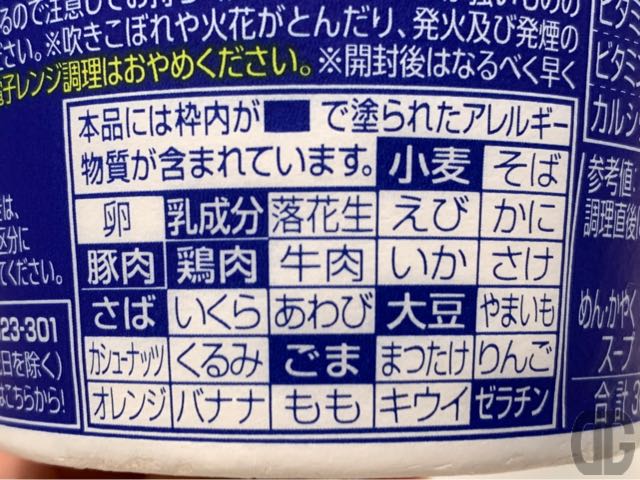 るので注意して
※吹きこぼれや火花がとんだり、発火及び発煙の
電子レンジ調理はおやめください。※開封後はなるべく早く
本品には枠内が■で塗られたアレルギー
物質が含まれています。 小麦 そば
卵 乳成分 落花生 えび かに
豚肉 鶏肉 牛肉 いか さけ
さば いくら あわび 大豆 やまいも
カシューナッツ くるみ ごま まつたけ りんご
オレンジ バナナ もも キウイ ゼラチン
てください。
23-301
日を除く)
はこちらから!
ビタミ
カルシ
参考値
調理直後
めん・かやく
スープ
合計